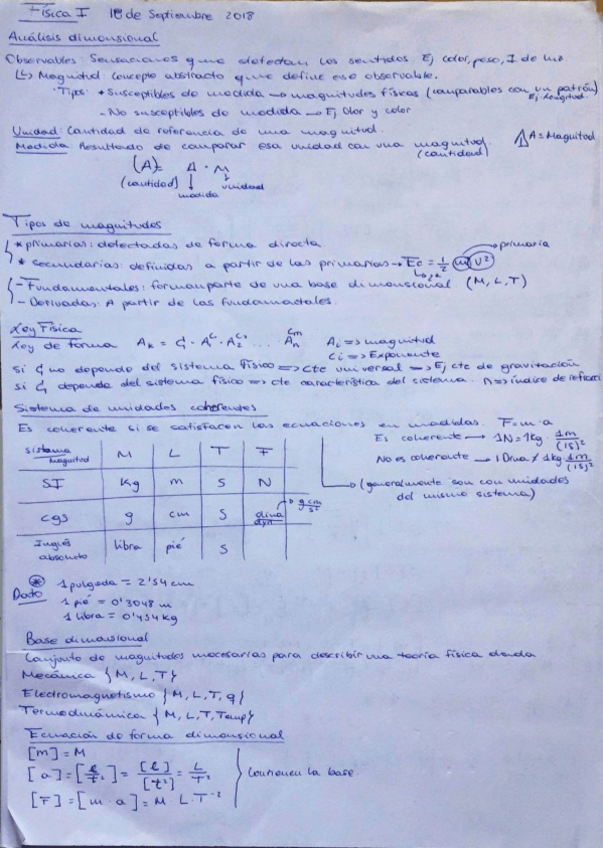 Física I 18 de Septiembre 2018
Análisis dimensional
Observables: Sensaciones que detectan los sentidos Ej color, peso, I de luz
↳ Magnitud: Concepto abstracto que define ese observable.
· Tipos: * Susceptibles de medida → magnitudes físicas (comparables con un patrón)
Ej. Longitud
- No susceptibles de medida → Ej Olor y color
Unidad: Cantidad de referencia de una magnitud.
Medida: Resultado de comparar esa unidad con una magnitud. A = Magnitud
(cantidad)
(A) = A · u
(cantidad) ↓ medida ↓ unidad
Tipos de magnitudes
* primarias: detectadas de forma directa.
* secundarias: definidas a partir de las primarias → Ec = 1/2 m v² → primaria
- Fundamentales: forman parte de una base dimensional (M, L, T)
- Derivadas: A partir de las fundamentales.
Ley Física
Ley de forma Ai => magnitud
Ci => Exponente
Si no depende del sistema físico => cte universal => Ej cte de gravitación
Si depende del sistema físico => cte característica del sistema.
Sistema de unidades coherentes
Es coherente si se satisfacen las ecuaciones en medidas. F = m·a
Es coherente → 1N = 1kg · 1m/(1s)²
No es coherente → 1 Dina ≠ 1kg · 1m/(1s)²
↳ (generalmente son con unidades
del mismo sistema)
sistema magnitud M L T F
SI Kg m s N
cgs g cm s dina dyn → g cm/s²
Inglés absoluto libra pié s
Dato
1 pulgada = 2'54 cm
1 pié = 0'3048 m
1 libra = 0'454 kg
Base dimensional
Conjunto de magnitudes necesarias para describir una teoría física dada
Mecánica {M, L, T}
Electromagnetismo {M, L, T, q}
Termodinámica {M, L, T, Temp}
Ecuación de forma dimensional
[m] = M
[a] = [l/t²] = [l]/[t²] = L/T²
[F] = [m · a] = M · L · T⁻²
Contienen la base